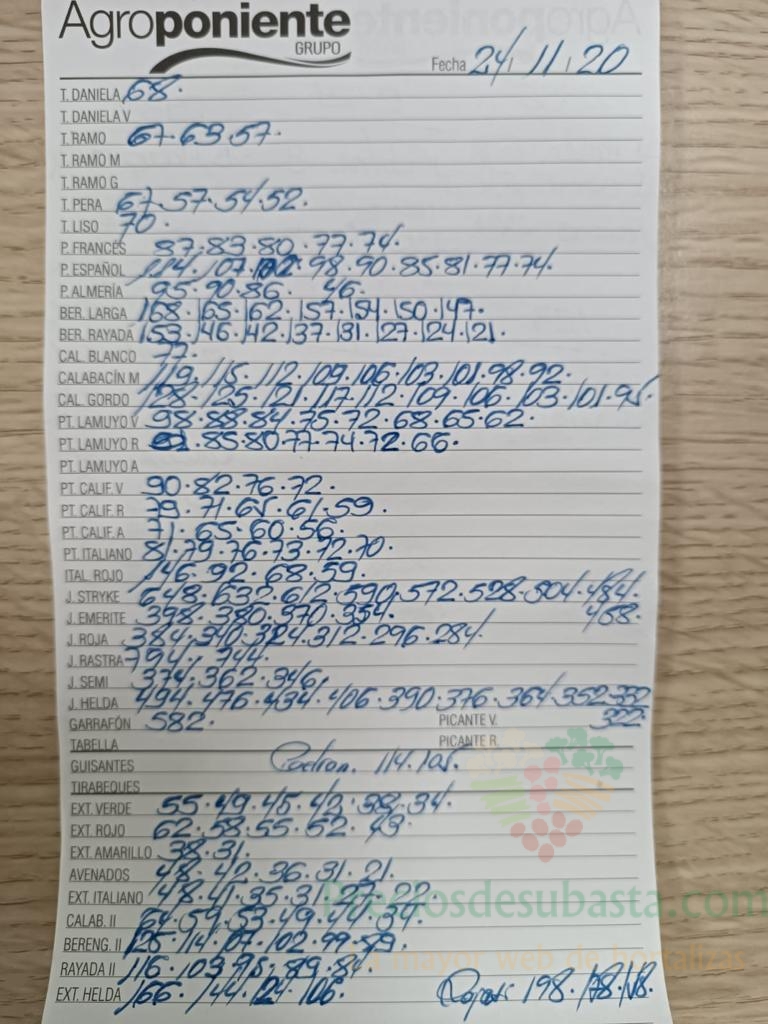 Agroponiente
GRUPO
Fecha 24/11/20
T. DANIELA 68.
T. DANELA V
T. RAMO 67.63.57.
T. RAMO M
T. RAMO G
T. PERA 67.57.54.52.
T. LISO 70.
P. FRANCÉS 87.83.80.77.74.
P. ESPAÑOL 114.107.102.98.90.85.81.77.74.
P. ALMERÍA 95.90.86. 46.
BER. LARGA 168.165.162.157.154.150.147.
BER. RAYADA 153.146.142.137.131.127.124.121.
CAL. BLANCO 77.
CALABACÍN M 119.115.112.109.106.103.101.98.92.
CAL. GORDO 128.125.121.117.112.109.106.103.101.95.
PT. LAMUYO V 98.88.84.75.72.68.65.62.
PT. LAMUYO R 85.80.77.74.72.66.
PT. LAMUYO A
PT. CALIF. V 90.82.76.72.
PT. CALIF. R 79.71.65.61.59.
PT. CALIF. A 71.65.60.56.
PT. ITALIANO 81.79.76.73.72.70.
ITAL. ROJO 146.92.68.59.
J. STRYKE 648.632.612.590.572.528.504.484.
468.
J. EMERITE 398.380.370.354.
J. ROJA 384.340.324.312.296.284.
J. RASTRA 794.744.
J. SEMI 374.362.346.
J. HELDA 494.476.434.406.390.376.364.352.332
322.
GARRAFÓN 582. PICANTE V.
TABELLA PICANTE R.
GUISANTES Padron. 114.105.
TIRABEQUES
EXT. VERDE 55.49.45.42.38.34.
EXT. ROJO 62.58.55.52.43.
EXT. AMARILLO 38.31.
AVENADOS 48.42.36.31.21.
EXT. ITALIANO 48.41.35.31.27.22.
Preciosdesubasta.com
CALAB. II 64.59.53.49.44.34.
BERENG. II 125.114.107.102.99.89.
la mayor web de hortalizas
RAYADA II 116.103.95.89.84.
EXT. HELDA 166.144.124.106. 198.178.